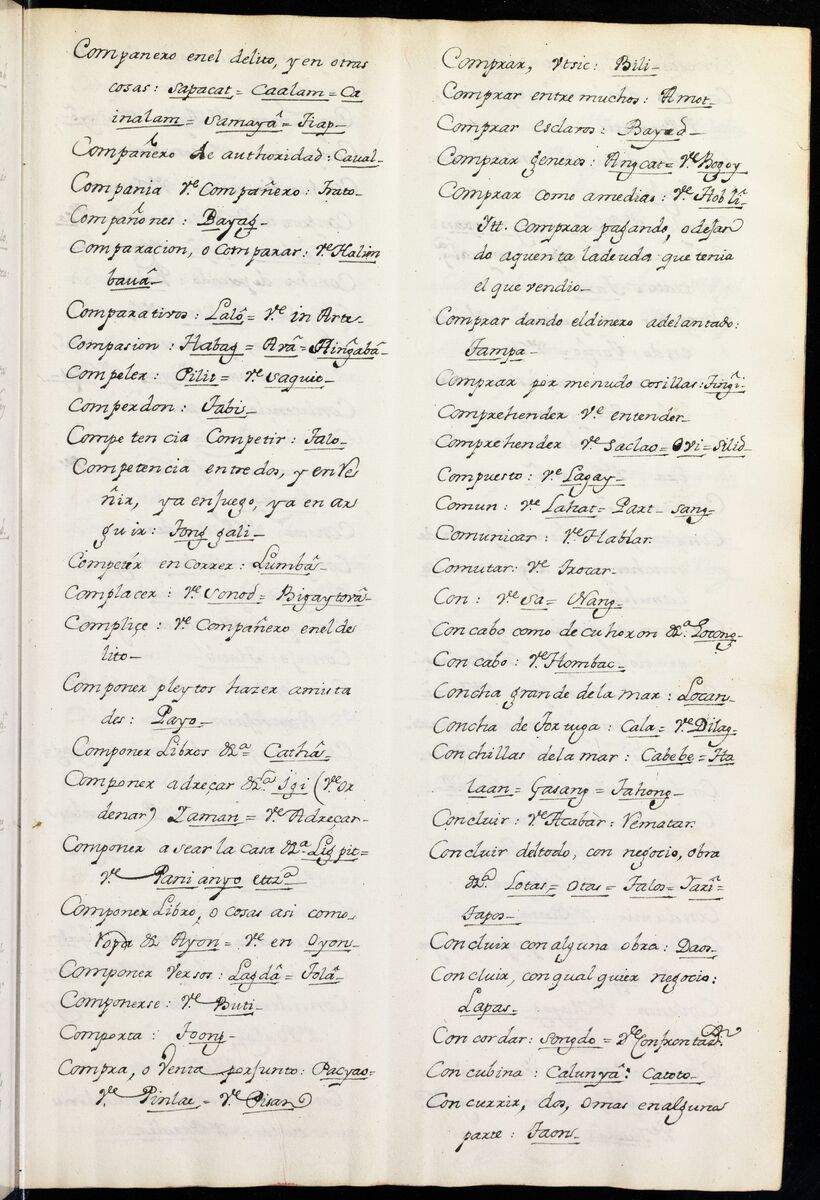 Compañero enel delito, y en otras
cosas: Sapacat = Caalam = Ca
inalam = Samaya^ = Tiap_
Compañero de authoridad: Caual_
Compania V.e Compañero: Trato_
Compañones: Bayag_
Comparacion, o comparar: V.e Halim
bauâ_
Comparativos: Lalô = V.e in Arte_
Compasion: Habag = Arâ = Hingabâ_
Compeler: Pilit = V.e Saquie_
Comperdon: Tabi_
Competencia Competir: Talo_
Competencia entre dos, y en Ve
ñir, ya enjuego, ya en ar
guir: Tong gali_
Competir en correr: Lumbâ_
Complacer: V.e Sonod = Bigaytorâ_
Compliçe: V.e Compañero enel de
lito_
Componer pleytos hazer amista
des: Payo_
Componer Libros &.a Cathâ_
Componer adreçar &.a Igi (V.e Or
denar) Zaman = V.e Adreçar_
Componer asear la casa &.a Lig pit =
V.e Pani anyo
Componer Libro, o cosas asi como
ropa & Ayon = V.e en Oyon_
Componer Versos: Lagdâ = Tolâ_
Componerse: V.e Buti_
Comporta: Toong_
Compra, o Venta porjunto: Pacyao =
V.e Pinlac = V.e Pisan
Comprar, Vtsic: Bili_
Comprar entre muchos: Amot_
Comprar esclaros: Bayad_
Comprar generos: Angcat = V.e Bogoy
Comprar como amedias: V.e Hoblî_
Itt. Comprar pagando, o dejan
do aquenta ladeuda que tenia
el que vendio_
Comprar dando eldinero adelantado:
Tampa_
Comprar por menudo cosillas: Tingi_
Comprehender V.e entender_
Comprehender V.e Saclao = Ori = Silid_
Compuesto: V.e Lagay_
Comun: V.e Lahat = Part_ Sang_
Comunicar: V.e Hablar.
Comutar: V.e Trocar_
Con: V.e Sa = Nang_
Con cabo como de cuharon &.a Locong_
Con cabo: V.e Hombac_
Concha grande dela mar: Locan_
Concha de Tortuga: Cala = V.e Dilag_
Conchillas dela mar: Cabebe = Ha
laan = Gasang = Tahong_
Concluir: V.e Acabar: V.e matar.
Concluir deltodo, con negocio, obra
&.a Lotas = Otas = Talos = Tarî =
Tapos_
Concluir con alguna obra: Daos_
Concluir, con qualquier negocio:
Lapas_
Concordar: Songdo = V.e Confrontar_
Concubina: Calunyâ: Catoto_
Concurrir, dos, o mas en alguna
parte: Taon_